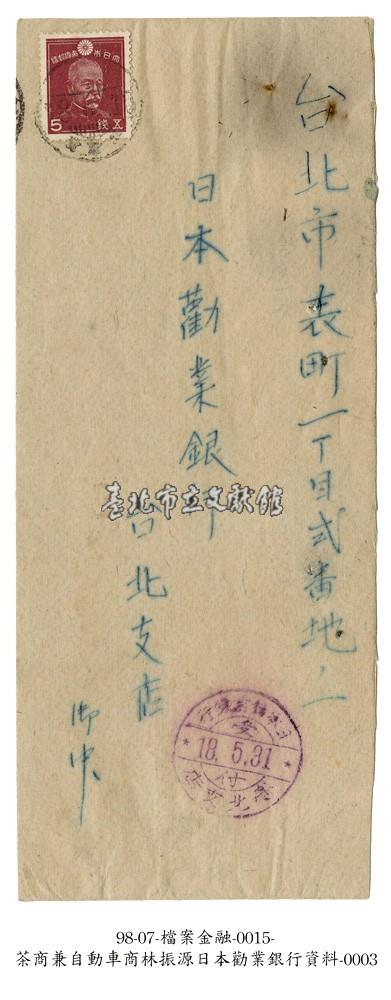 台北市表町一丁目弍番地ノ一
日本勸業銀行
台北支店
御中
大日本帝國郵便
5
錢五
日本勸業銀行
受付
18.5.31
台北支店
臺北市立文獻館
98-07-檔案金融-0015-
茶商兼自動車商林振源日本勸業銀行資料-0003